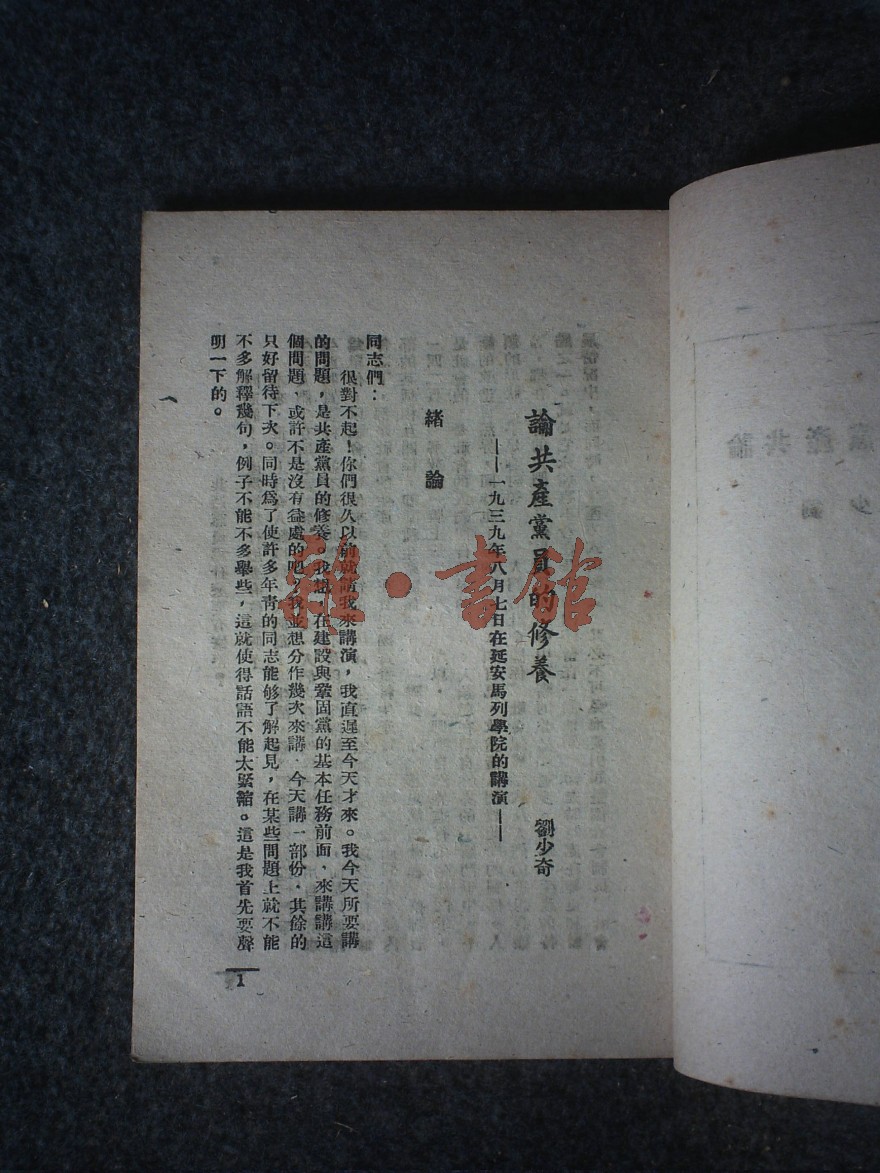 論共產黨員的修養
——一九三九年八月七日在延安馬列學院的講演——
劉少奇
緒論
同志們：
很對不起！你們很久以前就請我來講演，我直遲至今天才來。我今天所要講
的問題，是共產黨員的修養。我想，在建設與鞏固黨的基本任務前面，來講講這
個問題，或許不是沒有益處的吧？我並想分作幾次來講．今天講一部份，其餘的
只好留待下次。同時爲了使許多年靑的同志能够了解起見，在某些問題上就不能
不多解釋幾句，例子不能不多舉些，這就使得話語不能太緊縮。這是我首先要聲
明一下的。
1
雜·書館